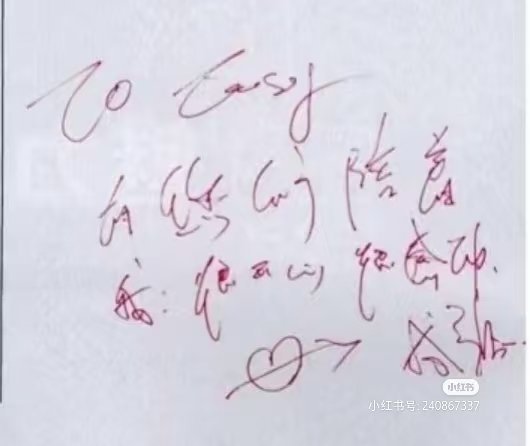 To Easy
有您们陪着
我: 很开心 很感动.
小红书
小红书号:240867337